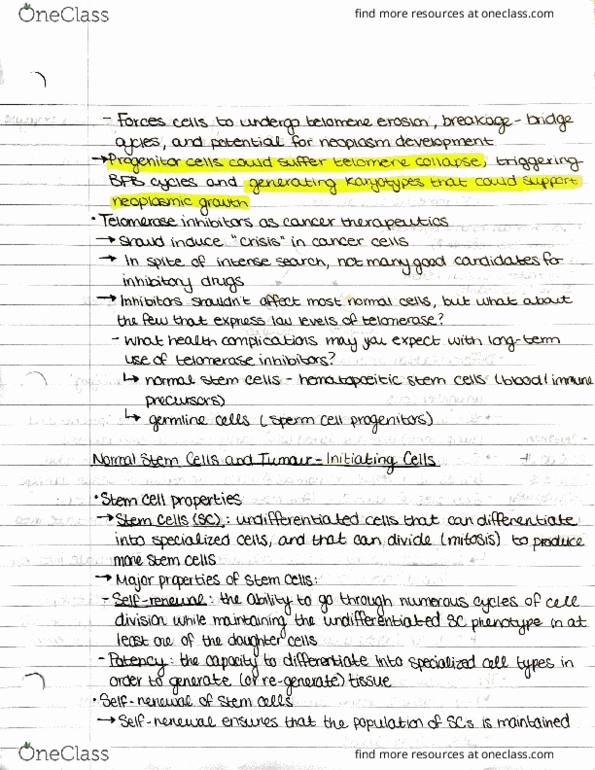 OneClass
find more resources at oneclass.com
- Forces cells to undergo telomere erosion, breakage-bridge
cycles, and potential for neoplasm development
→ Progenitor cells could suffer telomere collapse, triggering
BFB cycles and generating karyotypes that could support
neoplasmic growth
• Telomerase inhibitors as cancer therapeutics
→ Should induce "crisis" in cancer cells
→ In spite of intense search, not many good candidates for
inhibitory drugs
→ Inhibitors shouldn't affect most normal cells, but what about
the few that express low levels of telomerase?
- What health complications may you expect with long-term
use of telomerase inhibitors?
↳ normal stem cells - hematopoeitic stem cells (blood/immune
precursors)
↳ germline cells (sperm cell progenitors)
Normal Stem Cells and Tumour-Initiating Cells
• Stem cell properties
→ Stem Cells (SC): undifferentiated cells that can differentiate
into specialized cells, and that can divide (mitosis) to produce
more stem cells
→ Major properties of stem cells:
- Self-renewal: the ability to go through numerous cycles of cell
division while maintaining the undifferentiated SC phenotype in at
least one of the daughter cells
- Potency: the capacity to differentiate into specialized cell types in
order to generate (or re-generate) tissue
• Self-renewal of stem cells
→ Self-renewal ensures that the population of SCs is maintained
OneClass
find more resources at oneclass.com